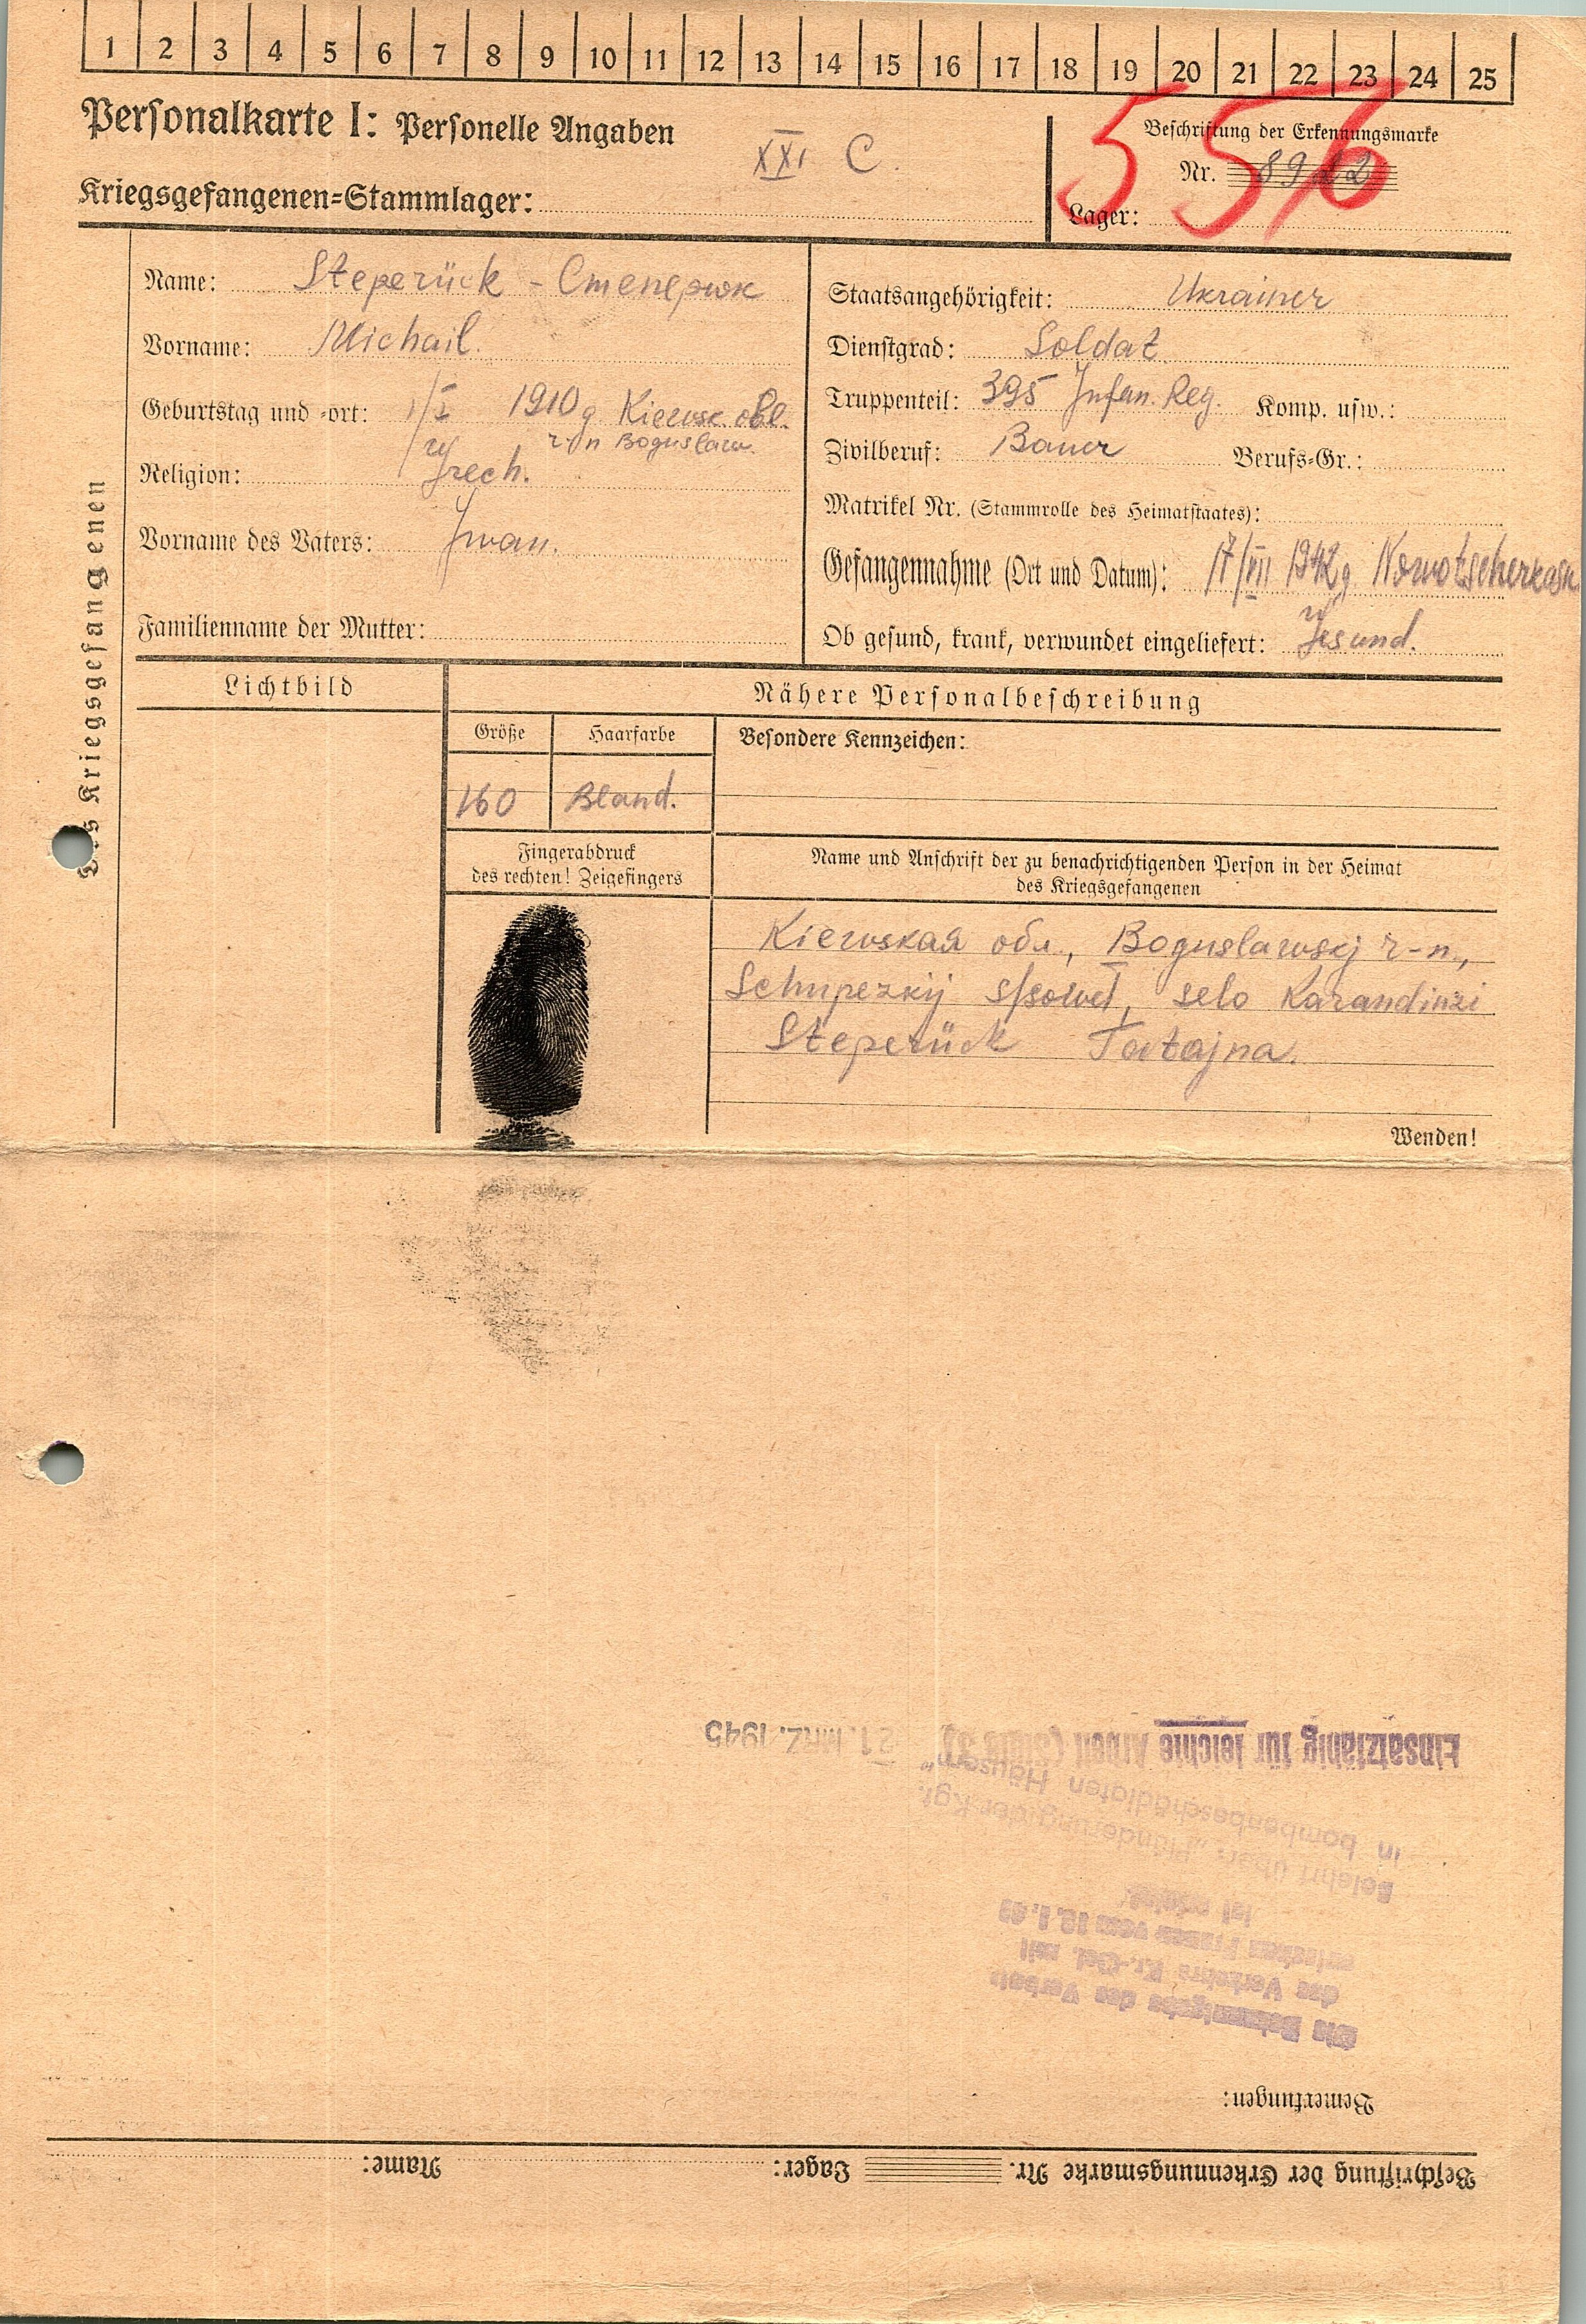 1 2 3 4 5 6 7 8 9 10 11 12 13 14 15 16 17 18 19 20 21 22 23 24 25
Personalkarte I: Personelle Angaben
XXI C.
Kriegsgefangenen-Stammlager:
Beschriftung der Erkennungsmarke
Nr. 8922
Lager:
556
Des Kriegsgefangenen
Name: Steperück - Степерюк
Vorname: Michail.
Geburtstag und -ort: 1/X 1910 g Kiewsk. obl.
r-n Boguslaw.
Religion: Grech.
Vorname des Vaters: Jwan.
Familienname der Mutter:
Staatsangehörigkeit: Ukrainer
Dienstgrad: Soldat
Truppenteil: 395 Jnfan. Reg. Komp. usw.:
Zivilberuf: Bauer Berufs-Gr.:
Matrikel Nr. (Stammrolle des Heimatstaates):
Gefangennahme (Ort und Datum): 17/VII 1942 g Nowotscherkask
Ob gesund, krank, verwundet eingeliefert: Gesund.
Lichtbild
Nähere Personalbeschreibung
Größe Haarfarbe Besondere Kennzeichen:
160 Bland.
Fingerabdruck
des rechten! Zeigefingers
Name und Anschrift der zu benachrichtigenden Person in der Heimat
des Kriegsgefangenen
Kiewskaя обл., Boguslawskj r-n.,
Schupezkij s/sowet, selo Karandinzi
Steperück Tatajna.
Wenden!
Einsatzfähig für leichte Arbeit (Stufe 3) 21. MRZ. 1945
Belehrt über: "Plünderung der Kgf.
in bombenbeschädigten Häusern"
Die Bekanntgabe des Verbots
des Verkehrs Kr.-Gef. mit
deutschen Frauen vom
ist erfolgt.
Bemerkungen:
Beschriftung der Erkennungsmarke Nr. Lager: Name: